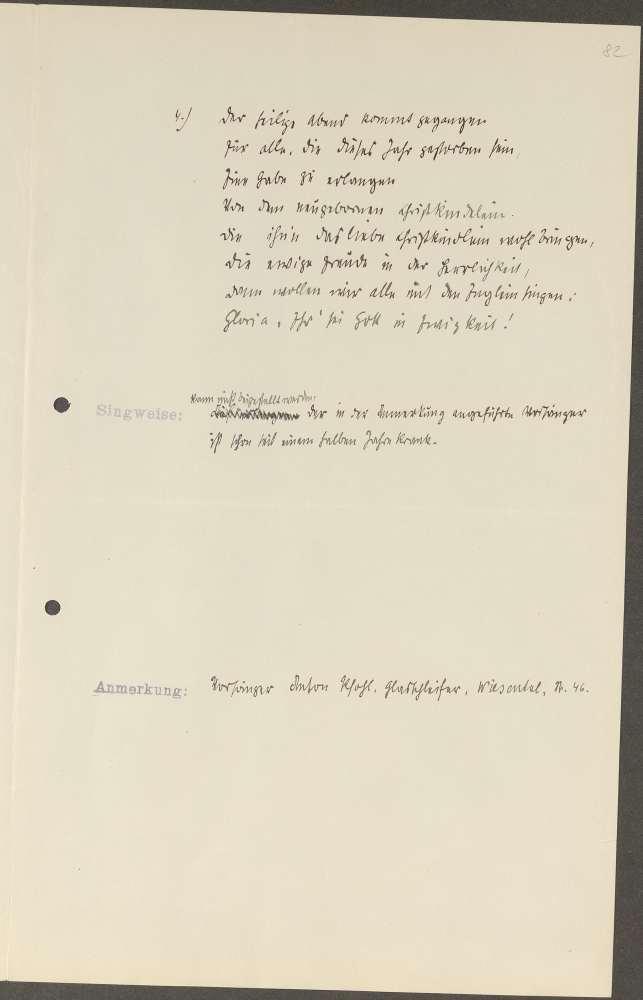 82
4.) Der heilige Abend kommt gegangen
Für alle, die dieses Jahr gestorben sein,
Eine Gabe zu erlangen
Von dem neugebornen Christkindelein.
Die ihn'n das liebe Christkindlein wohl bringen,
Die ewige Freude in der Herrlichkeit,
Dann wollen wir alle mit den Englein singen:
Gloria, Ehr' sei Gott in Ewigkeit!
kann nicht beigestellt werden:
Singweise: Der in der Anmerkung angeführte Vorsänger
ist schon seit einem halben Jahre krank.
Anmerkung: Vorsänger Anton Pfohl, Glasschleifer, Wiesental, Nr. 46.